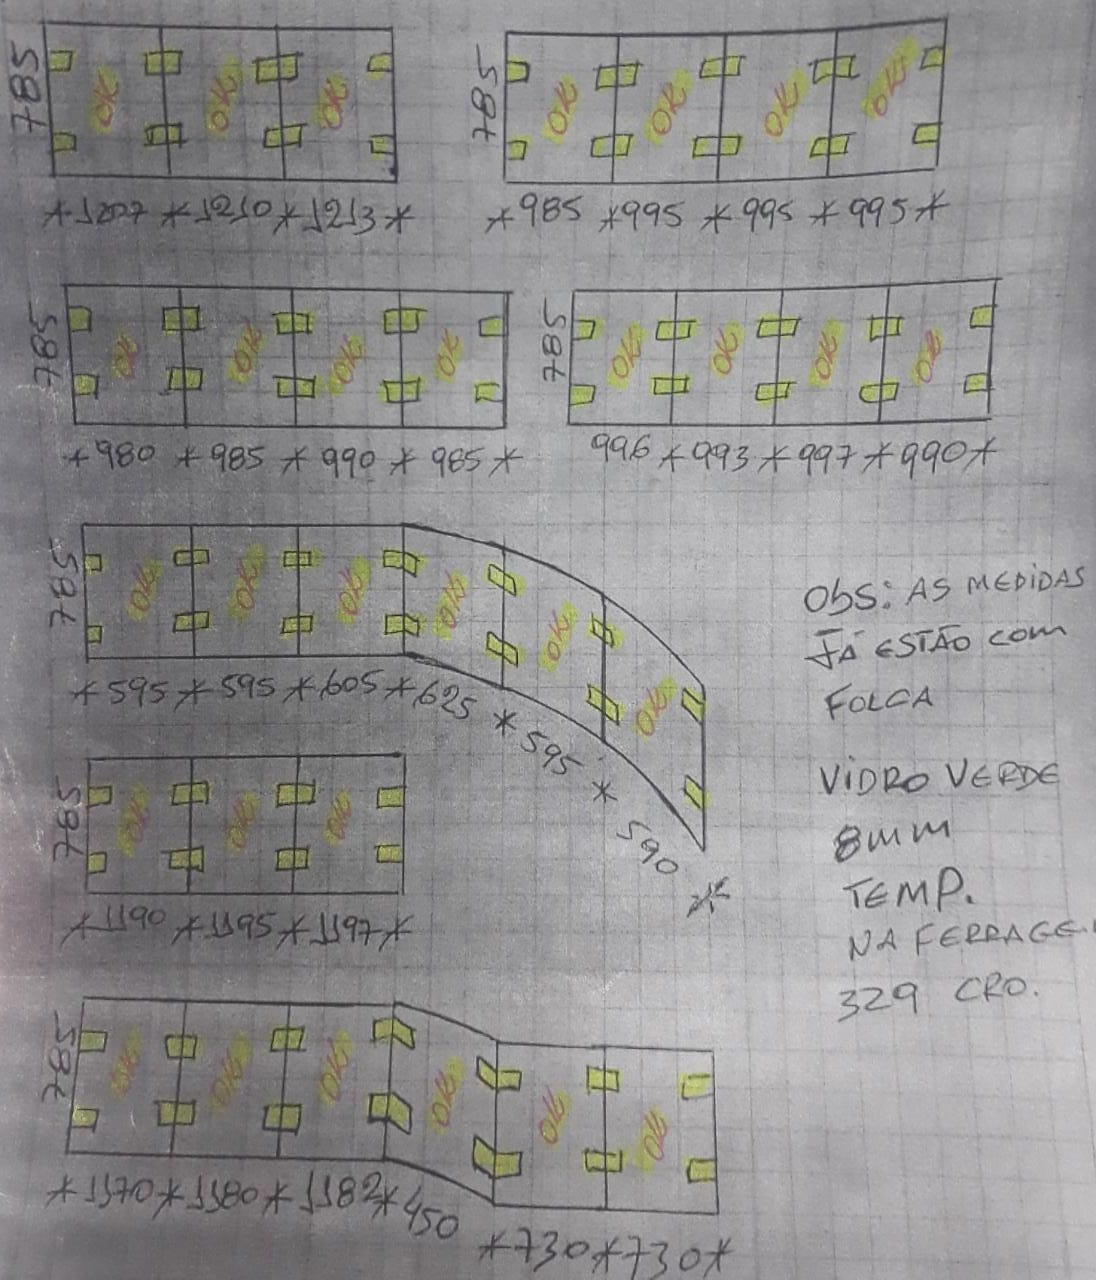 785
OK OK OK
*1207*1210*1213*
785
OK OK OK OK
*985*995*995*995*
785
OK OK OK OK
*980*985*990*985*
785
OK OK OK OK
996*993*997*990*
785
OK OK OK OK OK OK
*595*595*605*625*595*590*
785
OK OK OK
*1190*1195*1197*
785
OK OK OK OK OK OK
*1170*1180*1182*450
*730*730*
Obs: AS MEDIDAS
JÁ ESTÃO COM
FOLGA
VIDRO VERDE
8mm
TEMP.
NA FERRAGE
329 CRO.